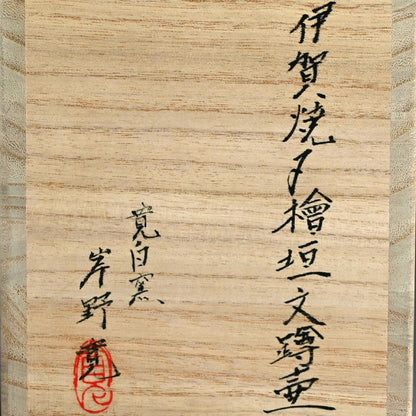 伊賀焼于檜垣文蹲壷
寛白窯
岸野寛